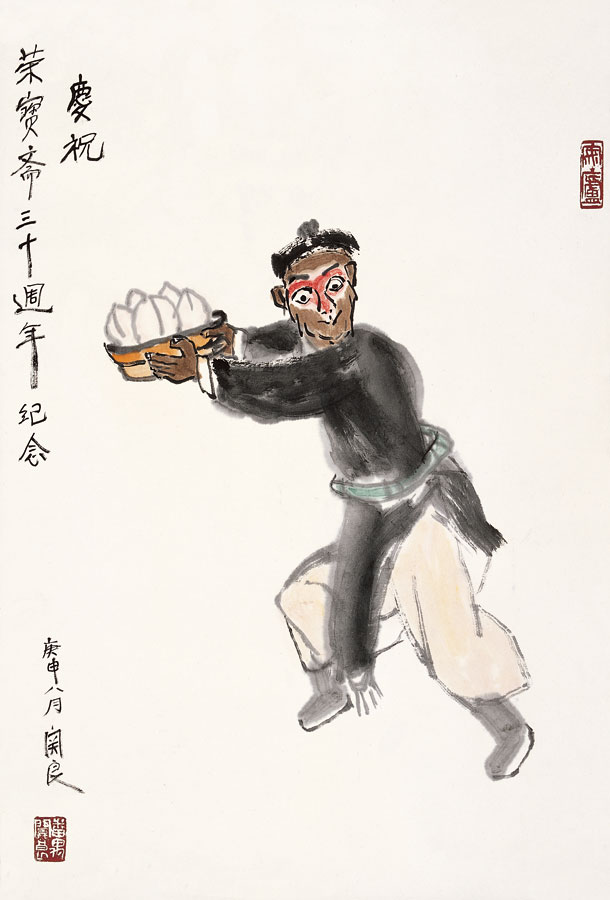 慶祝
荣寶斋三十週年纪念
庚申八月 関良
番禺關良